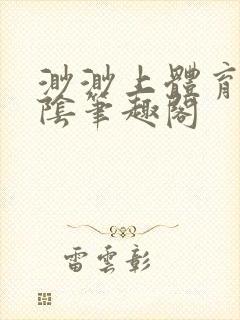 渺渺上體育
陰筆趣閣
雷雲彰